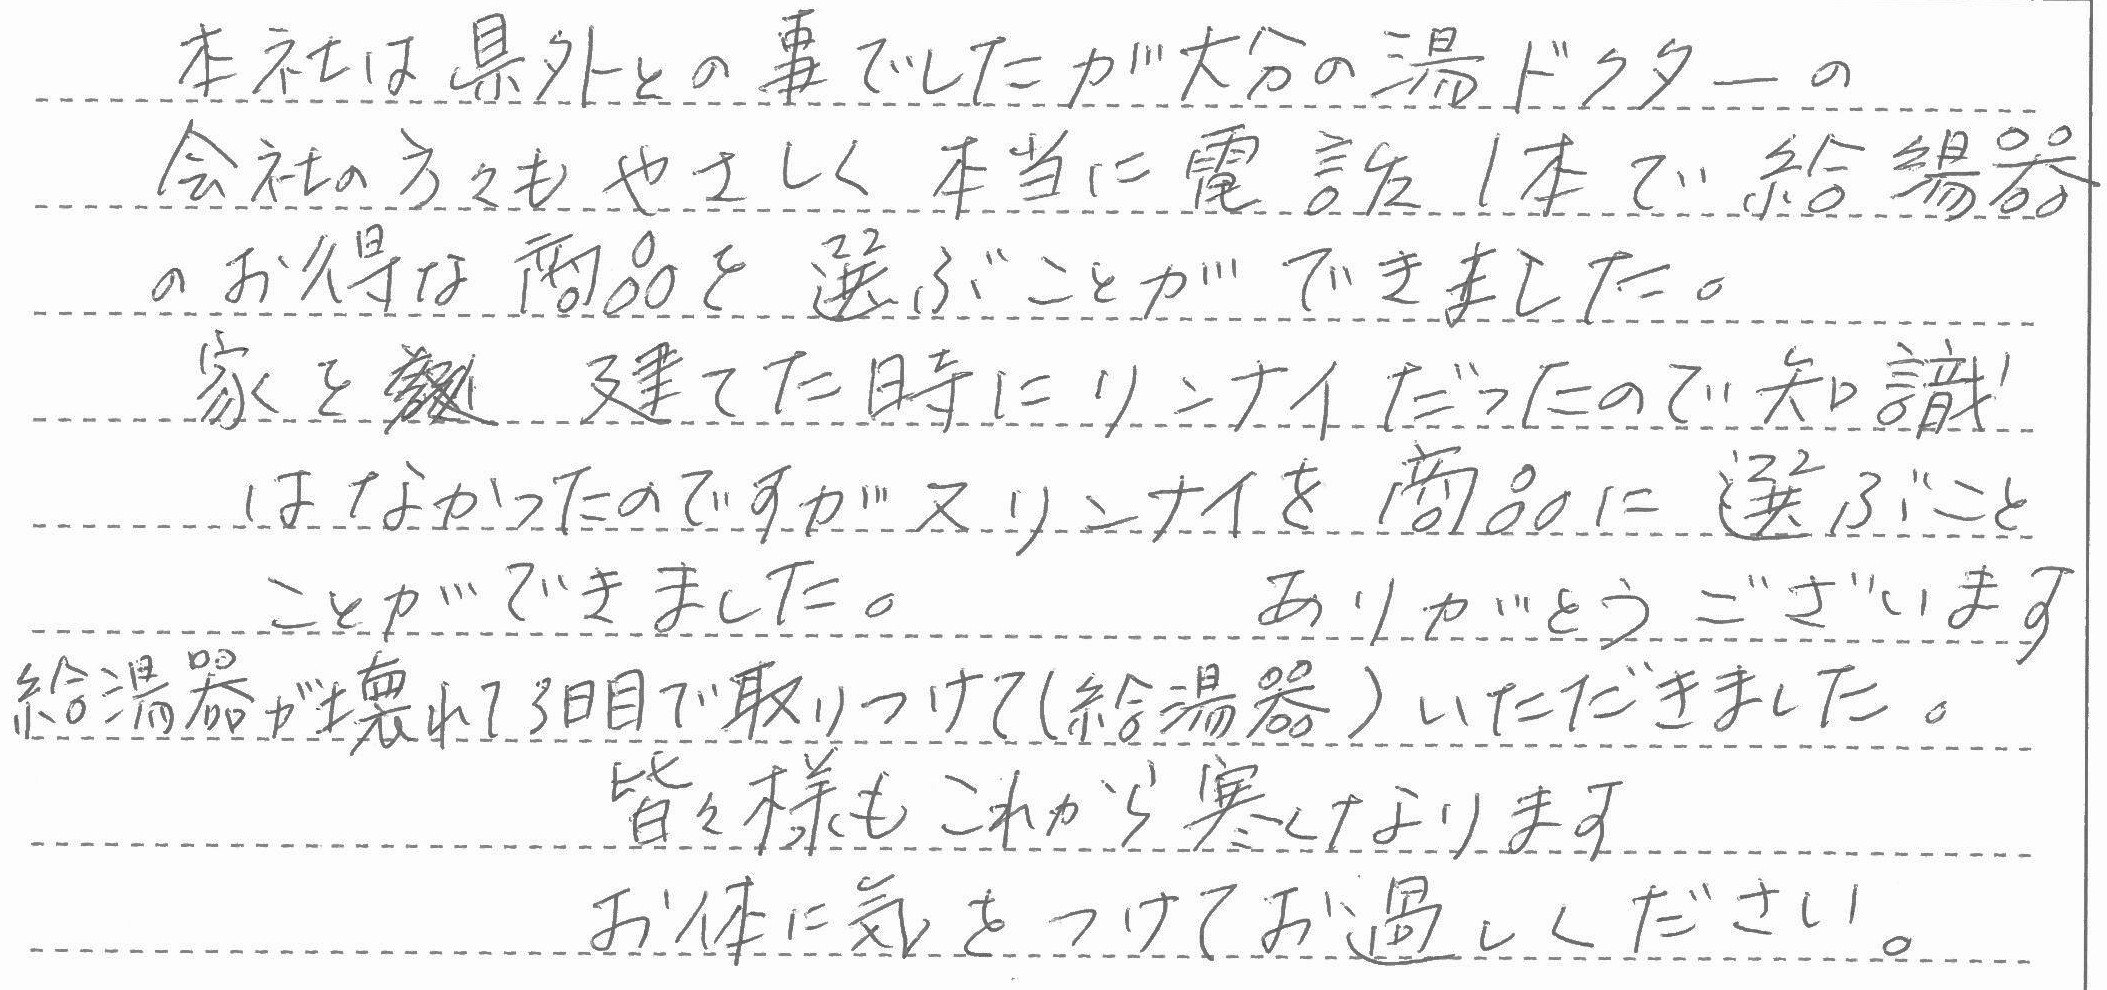 本社は県外との事でしたが大分の湯ドクターの
会社の方々もやさしく本当に電話1本で給湯器
のお得な商品を選ぶことができました。
家を 建てた時にリンナイだったので知識
はなかったのですが又リンナイを商品に選ぶこと
ことができました。 ありがとうございます
給湯器が壊れて3日目で取りつけて(給湯器)いただきました。
皆々様もこれから寒くなります
お体に気をつけてお過しください。